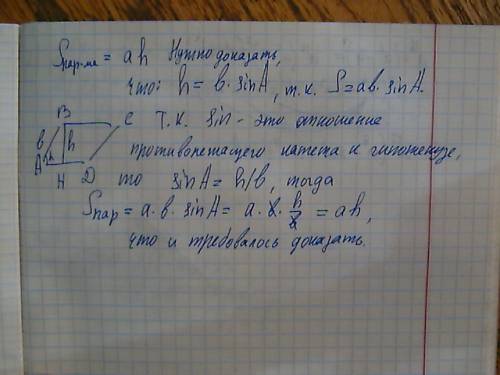 Sпар-ма = ah Нужно доказать,
что: h = b · sinA, т.к. S = ab · sinA.
B C
b h
A H D
Т.к. sin - это отношение
противолежащего катета к гипотенузе,
то sinA = h/b, тогда
Sпар = a · b · sinA = a · b · h/b = ah,
что и требовалось доказать.